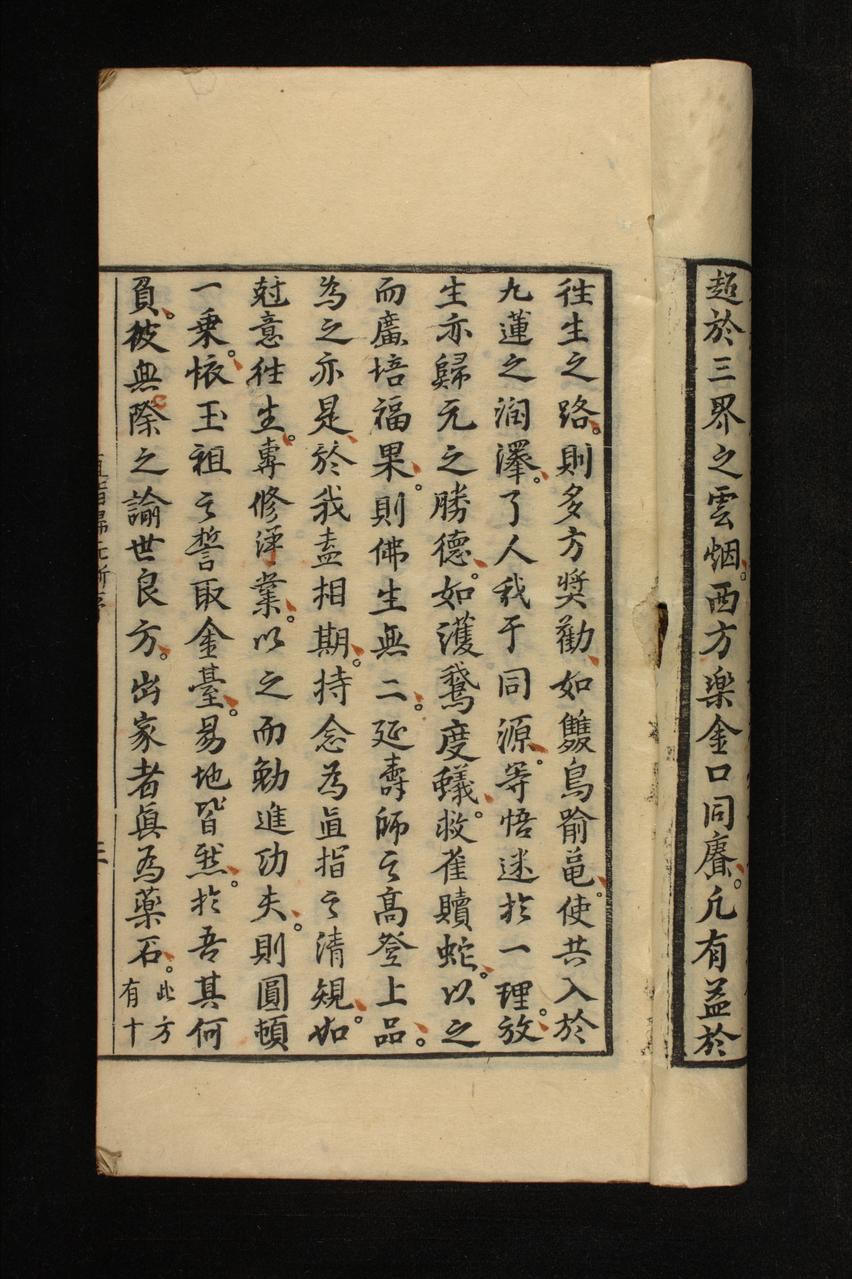 超於三界之雲烟。西方樂金口同賡。凡有益於
徃生之路。則多方奬勸如雙鳥喻黽。使共入於
九蓮之润澤。了人我于同源。等悟迷於一理。放
生亦歸元之勝德。如濩鵝度蟻。救雀贖蛇。以之
而廣培福果。則佛生無二。延壽師之高登上品。
為之亦是於我盍相期。持念為直指之清規。如
尅意徃生。專修淨業。以之而勉進功夫。則圓頓
一乘。懷玉祖之誓取金臺。易地皆然。於吾其何
負彼無際之諭世良方。出家者真為藥石。此方
有十
直指歸元新序
三